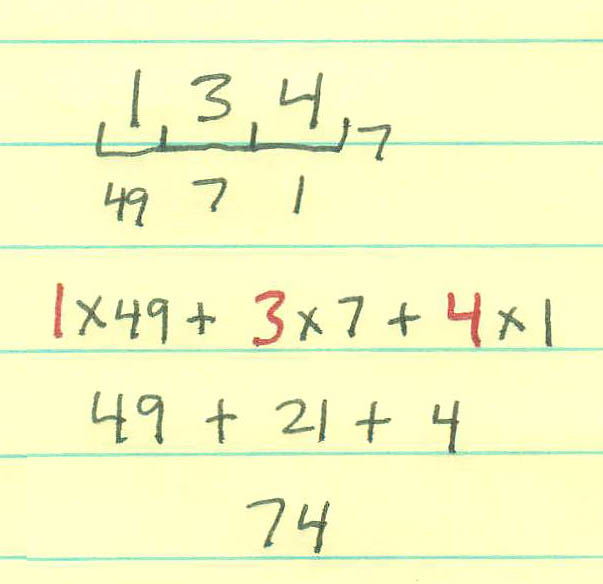 1 3 4 7
49 7 1
1 x 49 + 3 x 7 + 4 x 1
49 + 21 + 4
74